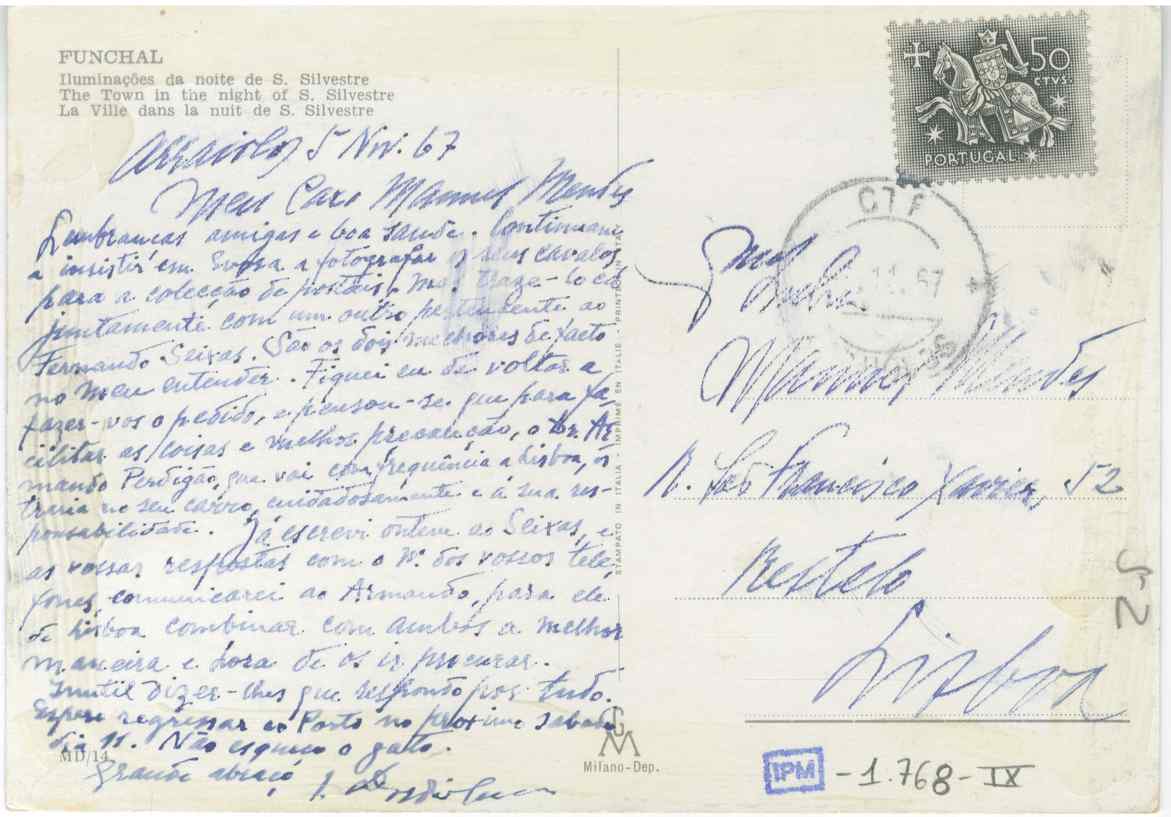 FUNCHAL
Iluminações da noite de S. Silvestre
The Town in the night of S. Silvestre
La Ville dans la nuit de S. Silvestre
Arraiolos 5 Nov. 67
Meu Caro Manuel Mendes
Lembranças amigas e boa saude. Continuam
a insistir em Evora a fotografar os seus cavalos
para a colecção de postais, e traze-lo cá
juntamente com um outro pertencente ao
Fernando Seixas. São os dois melhores de facto
no meu entender. Fiquei eu de voltar a
fazer-vos o pedido, e pensou-se que para fa-
cilitar as coisas e melhor precaução, o Dr. Ar-
mando Perdigão, que vai com frequência a Lisboa, os
traria no seu carro, cuidadosamente e á sua res-
ponsabilidade. Já escrevi ontem ao Seixas, e
as vossas respostas com o Nº. dos vossos tele-
fones, comunicarei ao Armando, para ele
de Lisboa combinar com ambos a melhor
maneira e hora de os ir procurar.
Inutil dizer-lhes que respondo por tudo.
Espero regressar ao Porto no proximo sabado
dia 11. Não esqueço o gato.
Grande abraço
MD/14
STAMPATO IN ITALIA - IMPRIMÉ EN ITALIE - PRINTED IN ITALY
GM
Milano-Dep.
50
CTVS.
PORTUGAL
CTF
11.67
Manuel Mendes
R. São Francisco Xavier, 52
Restelo
Lisboa
52
IPM -1.768-IX